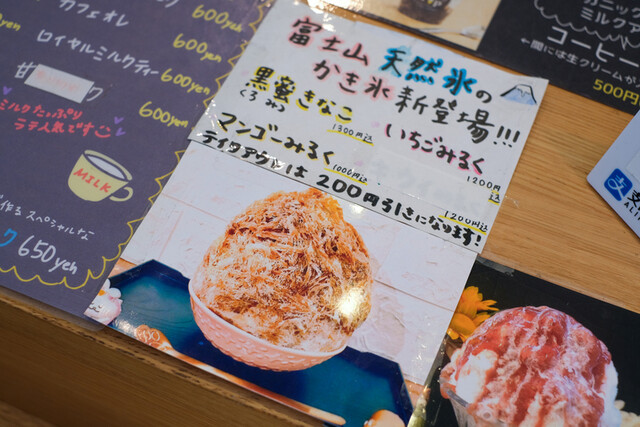 カフェオレ
600yen
600yen
ロイヤルミルクティー
600yen
ミルクたっぷり
ラテ人気です
600yen
MILK
作る スペシャルな
650yen
富士山 天然氷の
かき氷 新登場!!!
黒蜜きなこ
くろ みつ
1300円込
いちごみるく
1200円
込
マンゴーみるく
1200円込
テイクアウトは 200円引きになります!
コーヒー
500円
支